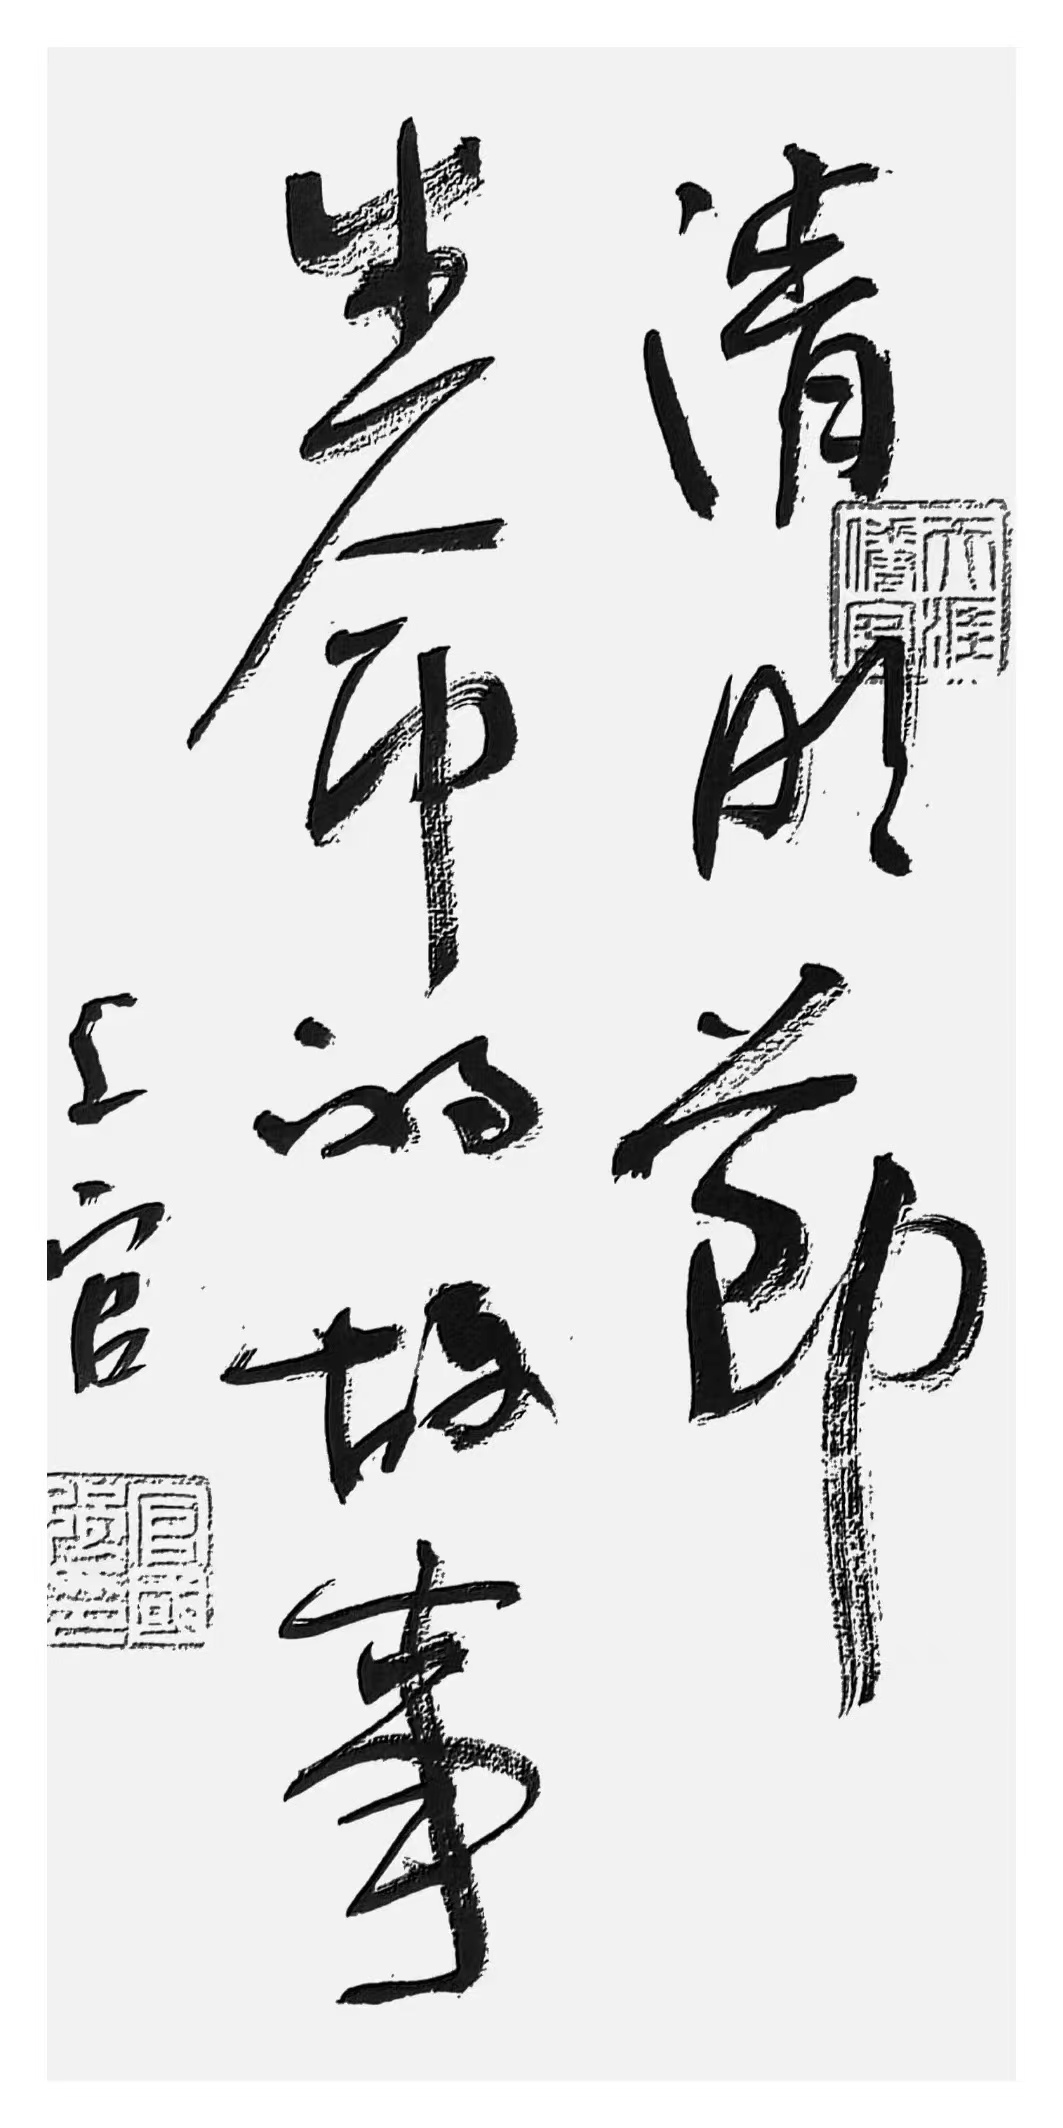 清明節
革命的故事
上官